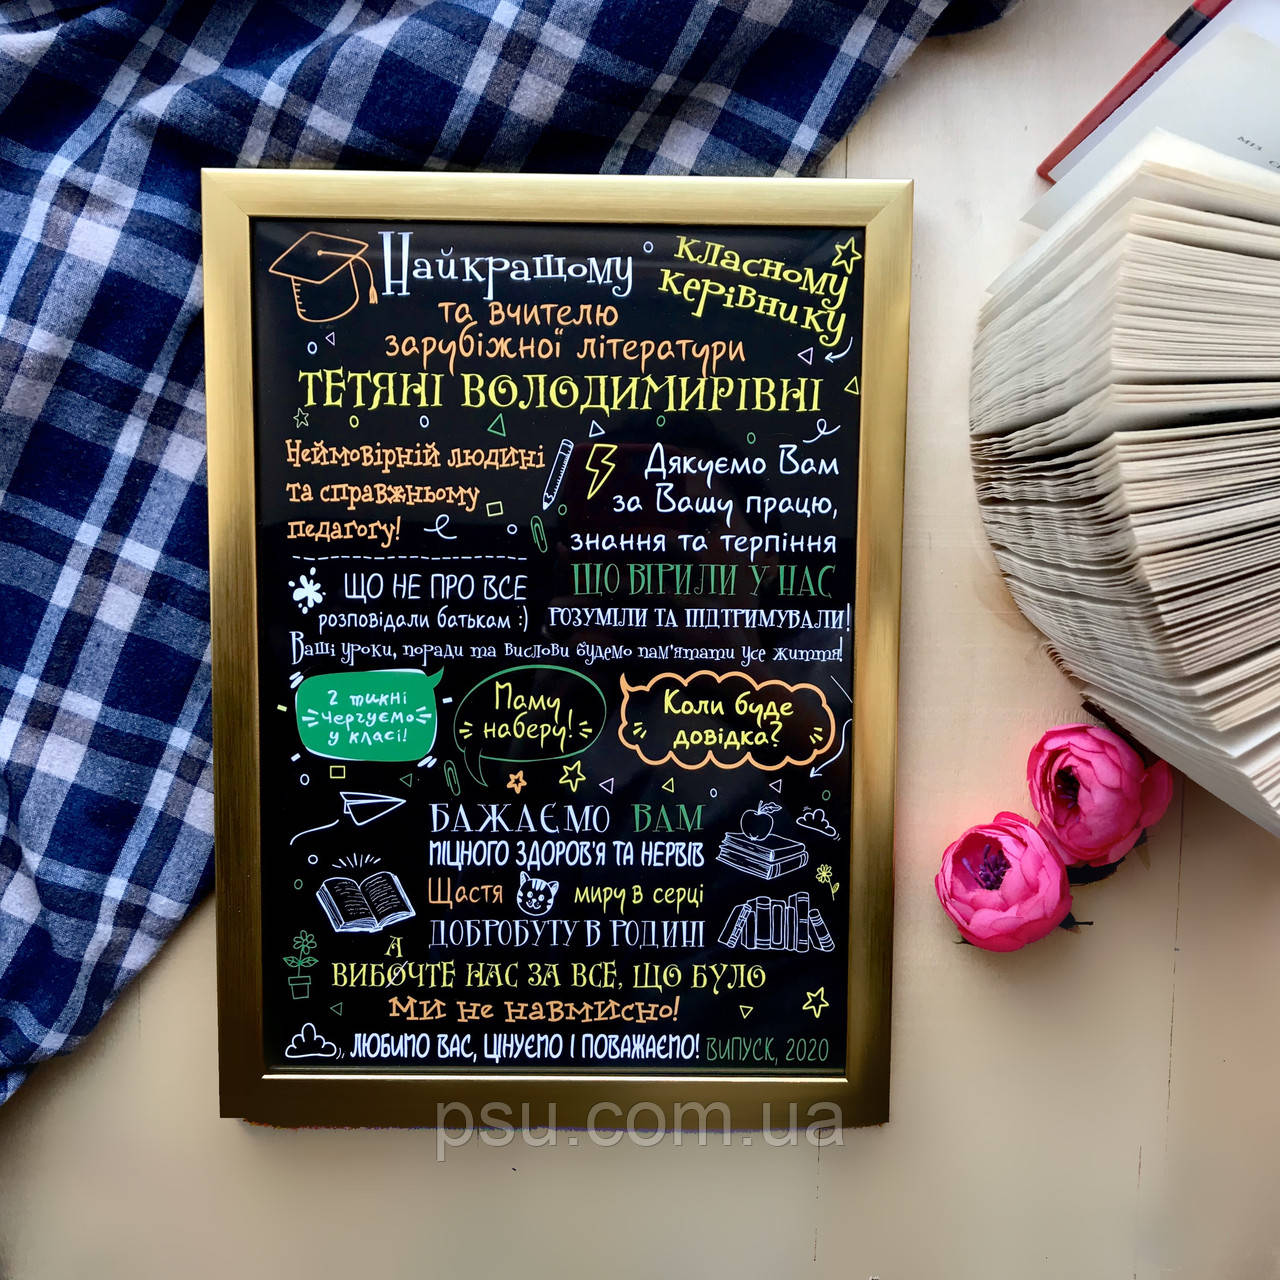 Найкращому
класному
керівнику
та вчителю
зарубіжної літератури
ТЕТЯНІ ВОЛОДИМИРІВНІ
Неймовірній людині
та справжньому
педагогу!
Дякуємо Вам
за Вашу працю,
знання та терпіння
ЩО ВІРИЛИ У НАС
РОЗУМІЛИ ТА ПІДТРИМУВАЛИ!
ЩО НЕ ПРО ВСЕ
розповідали батькам :)
Ваші уроки, поради та вислови будемо пам'ятати усе життя!
2 тижні
чергуємо
у класі!
Маму
наберу!
Коли буде
довідка?
БАЖАЄМО ВАМ
МІЦНОГО ЗДОРОВ'Я ТА НЕРВІВ
Щастя миру в серці
ДОБРОБУТУ В РОДИНІ
А
ВИБОЧТЕ НАС ЗА ВСЕ, ЩО БУЛО
МИ НЕ НАВМИСНО!
ЛЮБИМО ВАС, ЦІНУЄМО І ПОВАЖАЄМО! ВИПУСК, 2020
psu.com.ua